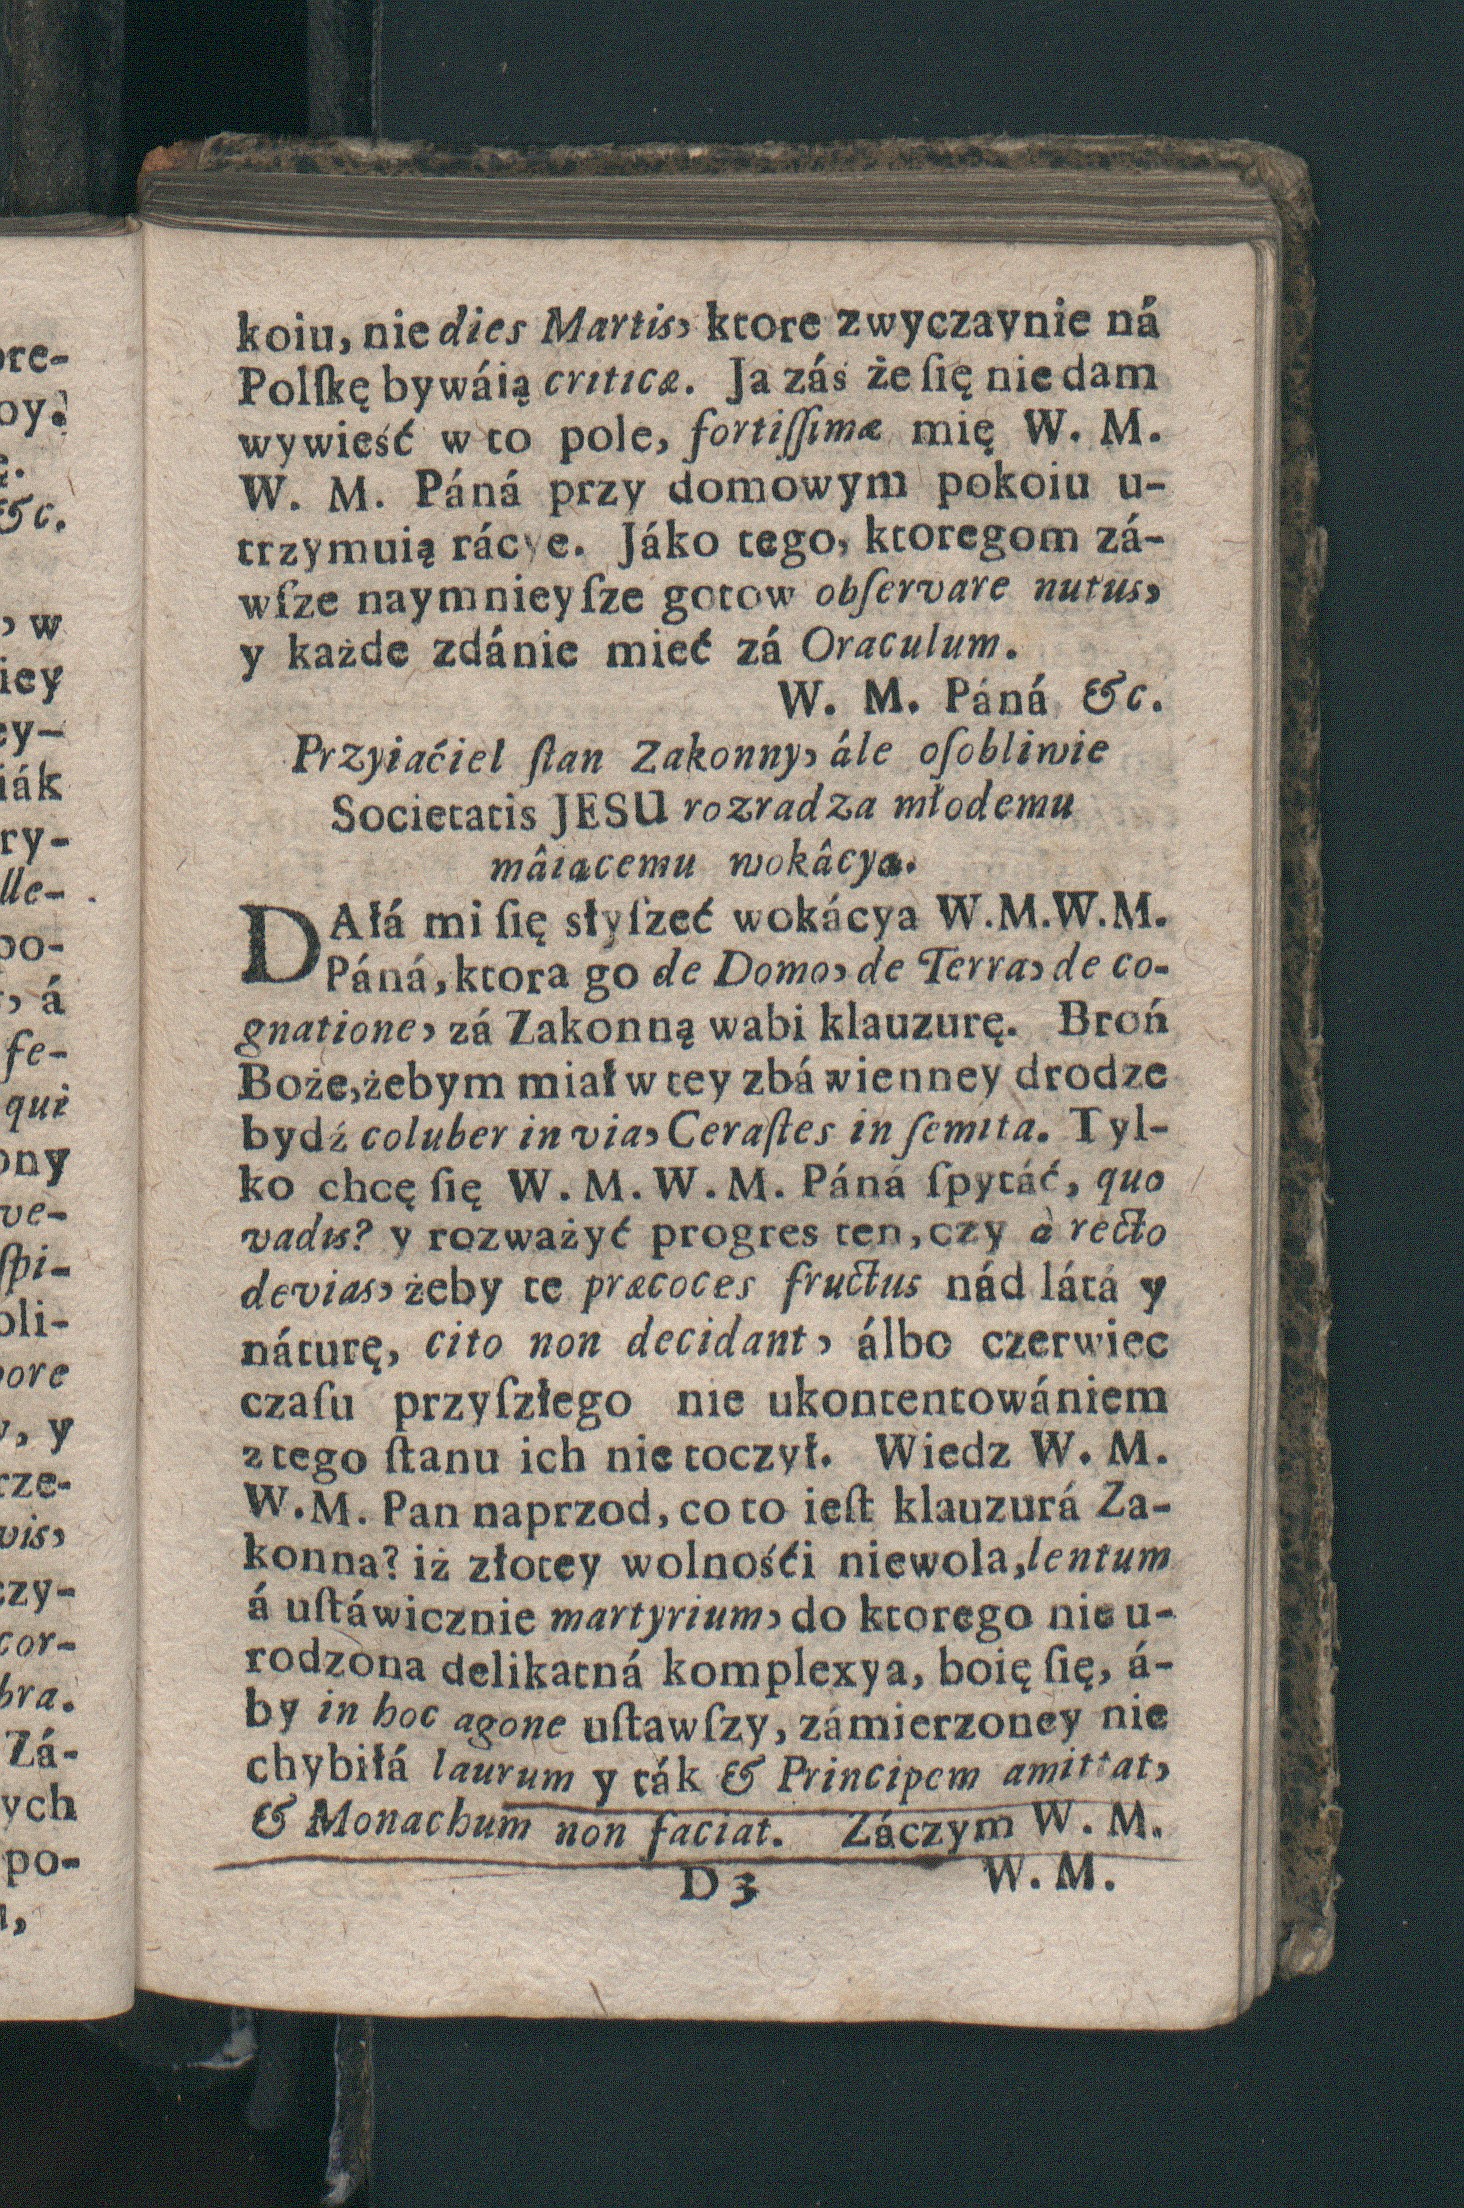 koiu, nie dies Martis, ktore zwyczaynie ná
Polſkę bywáią criticæ. Ja záś że ſię nie dam
wywieść w to pole, fortiſſimæ mię W. M.
W. M. Páná przy domowym pokoiu u-
trzymuią rácye. Jáko tego, ktoregom zá-
wſze naymnieyſze gotow obſervare nutus,
y każde zdánie mieć zá Oraculum.
W. M. Páná &c.
Przyiaćiel ſtan Zakonny, ále oſobliwie
Societatis JESU rozradza młodemu
mâiącemu wokâcyą.
DAłá mi ſię słyſzeć wokácya W.M.W.M.
Páná, ktora go de Domo, de Terra, de co-
gnatione, zá Zakonną wabi klauzurę. Broń
Boże, żebym miał w tey zbáwienney drodze
bydź coluber in via, Ceraſtes in ſemita. Tyl-
ko chcę ſię W.M.W.M. Páná ſpytáć, quo
vadis? y rozważyć progres ten, czy à recto
devias, żeby te præcoces fructus nád látá y
náturę, cito non decidant, álbo czerwiec
czaſu przyſzłego nie ukontentowániem
z tego ſtanu ich nie toczył. Wiedz W. M.
W.M. Pan naprzod, co to ieſt klauzurá Za-
konna? iż złotey wolnośći niewola, lentum
á uſtáwicznie martyrium, do ktorego nie u-
rodzona delikatná komplexya, boię ſię, á-
by in hoc agone uſtawſzy, zámierzoney nie
chybiłá laurum y ták & Principem amittat,
& Monachum non faciat. Záczym W. M.
D 3 W. M.